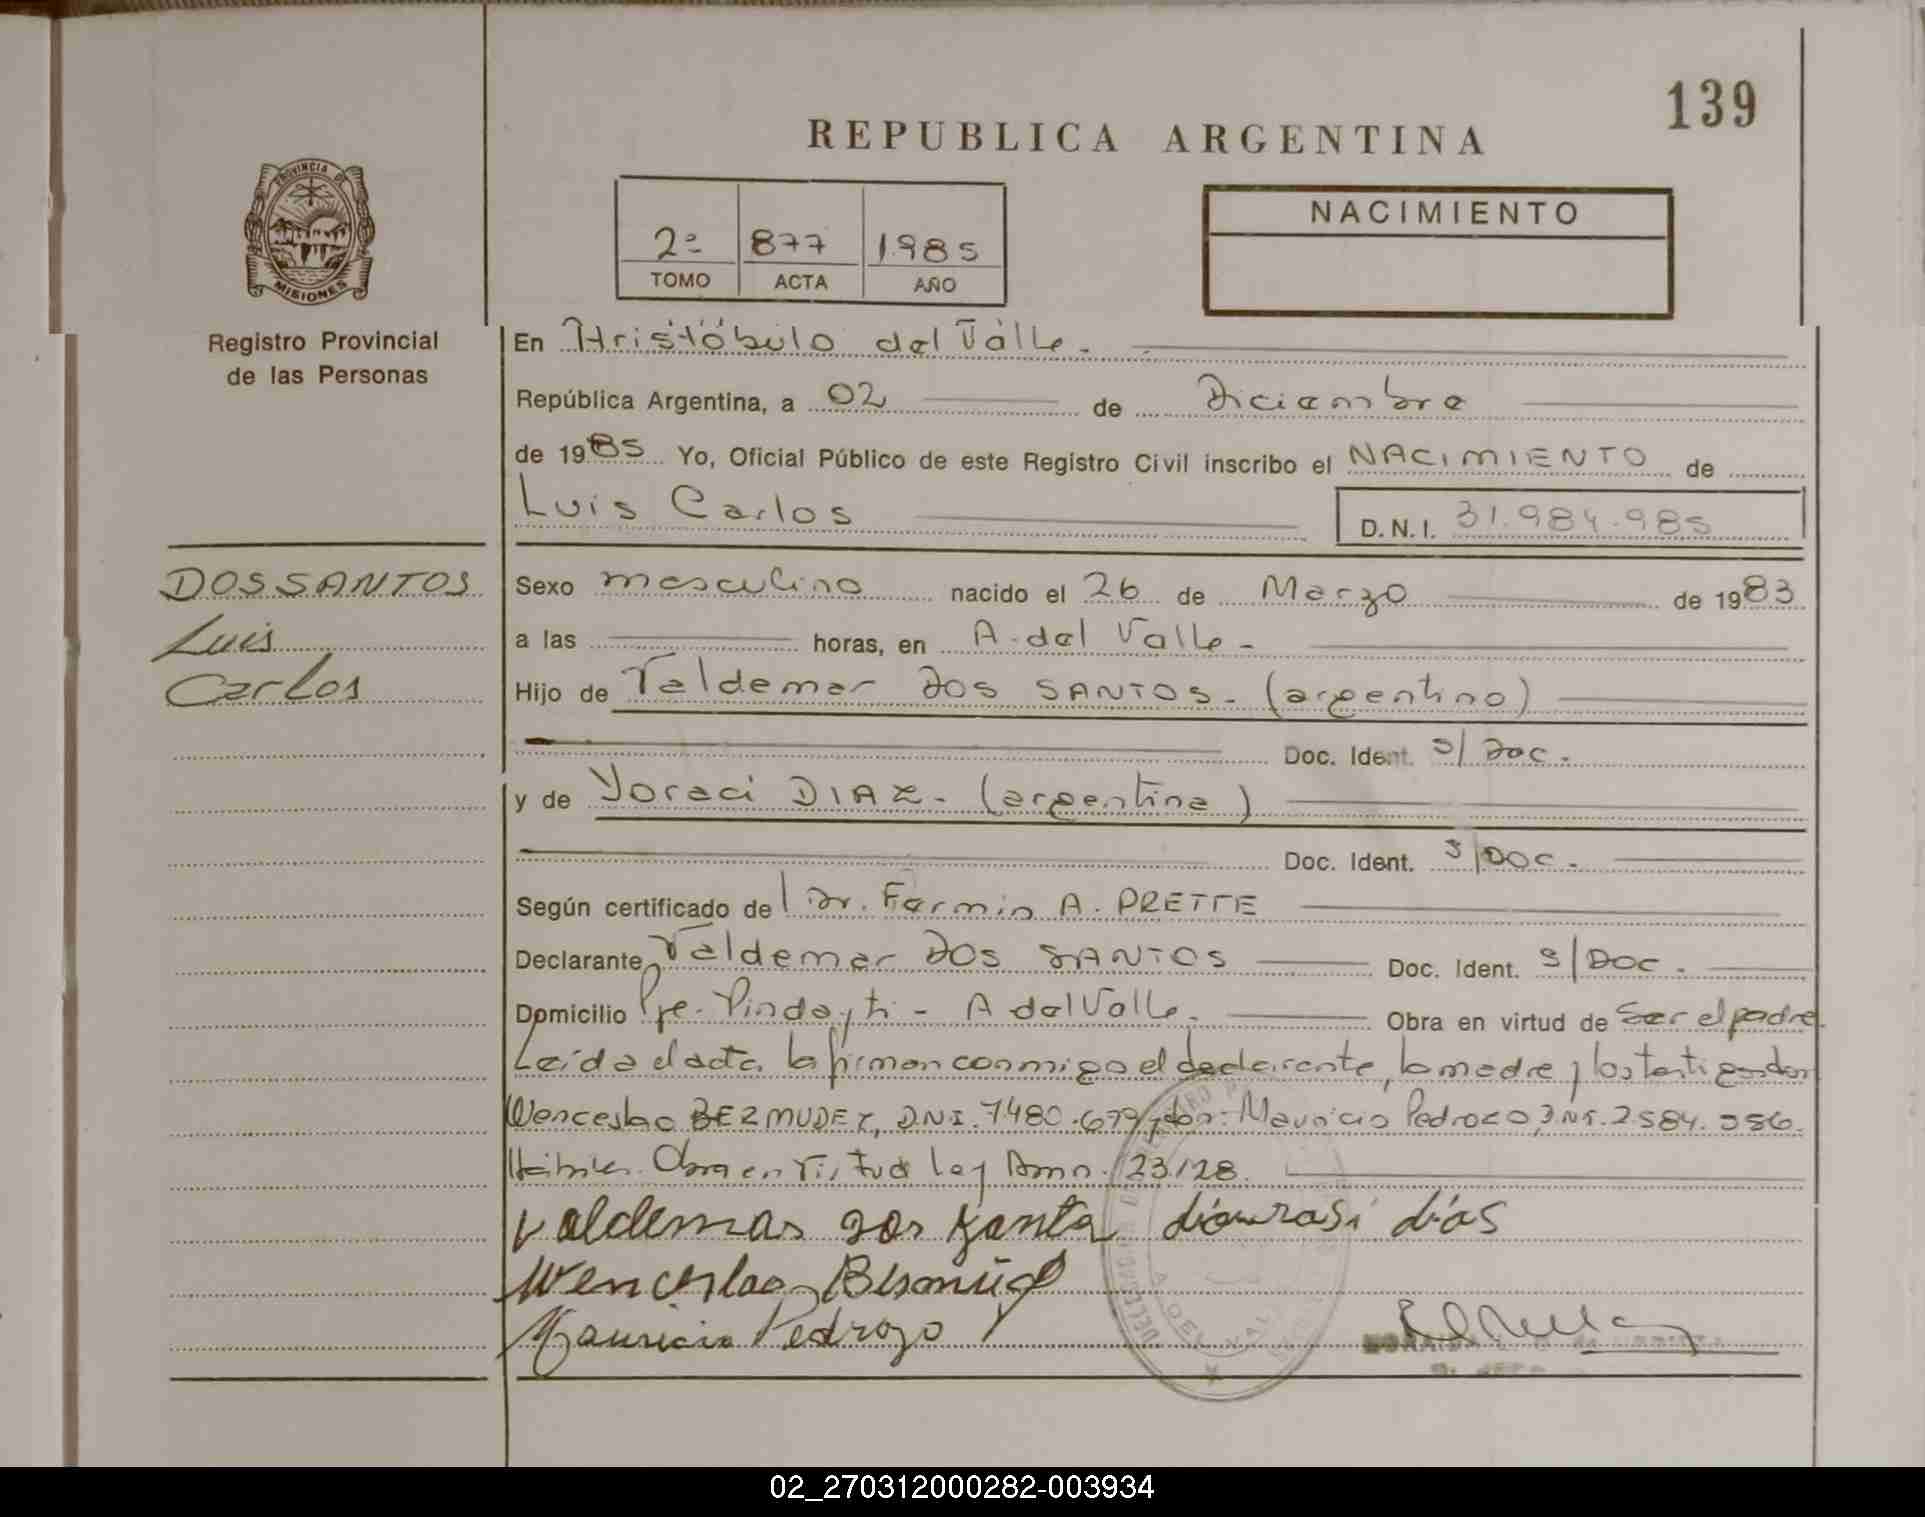 139
REPUBLICA ARGENTINA
PROVINCIA DE
MISIONES
Registro Provincial
de las Personas
2º 877 1985
TOMO ACTA AÑO
NACIMIENTO
En Aristóbulo del Valle.-
República Argentina, a 02 de Diciembre
de 1985 Yo, Oficial Público de este Registro Civil inscribo el NACIMIENTO de
Luis Carlos
D.N.I. 31.984.985
DOS SANTOS
Luis
Carlos
Sexo masculino nacido el 26 de Marzo de 1983
a las horas, en A. del Valle-
Hijo de Valdemar DOS SANTOS- (argentino)
Doc. Ident. S/Doc.
y de Yoraci DIAZ- (argentina)
Doc. Ident. S/DOC-
Según certificado del Dr. Fermin A. PRETTE
Declarante Valdemar DOS SANTOS Doc. Ident. S/DOC.
Domicilio Pje. Pindayti - A del Valle. Obra en virtud de Ser el padre
Leída el acta la firman conmigo el declarante, la madre y los testigos don
Wenceslao BERMUDEZ, DNI. 7480.679 y don: Mauricio Pedrozo, DNI. 2.584.
Hábiles. Obra en Virtud Ley Amn. 23128.
valdemar dos santo diourasi dias
Wenceslao
Mauricio Pedrozo
A. DEL VALLE
02_270312000282-003934